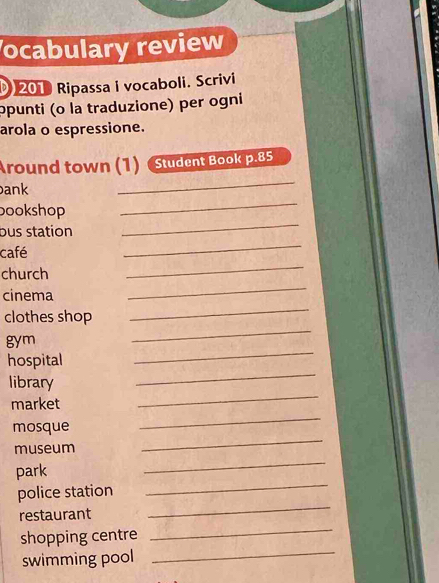 Vocabulary review
201 Ripassa i vocaboli. Scrivi
appunti (o la traduzione) per ogni
parola o espressione.
Around town (1) Student Book p.85
bank
bookshop
bus station
café
church
cinema
clothes shop
gym
hospital
library
market
mosque
museum
park
police station
restaurant
shopping centre
swimming pool